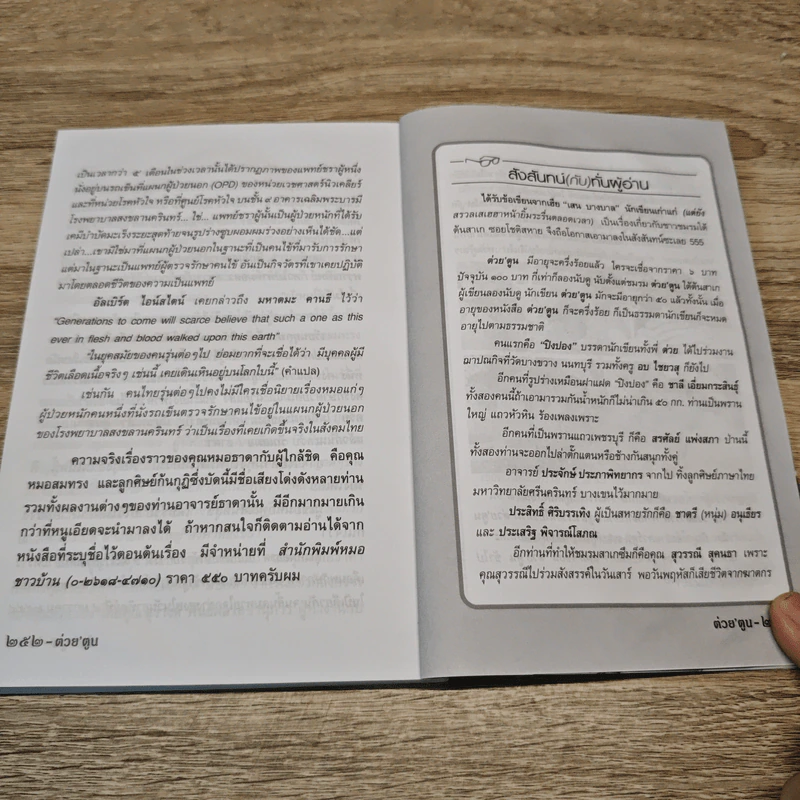 เป็นเวลากว่า ๕ เดือนในช่วงเวลานั้นได้ปรากฏภาพของแพทย์ชราผู้หนึ่ง
นั่งอยู่บนรถเข็นที่แผนกผู้ป่วยนอก (OPD) ของหน่วยเวชศาสตร์นิวเคลียร์
และที่หน่วยโรคหัวใจ หรือที่ศูนย์โรคหัวใจ บนชั้น ๙ อาคารเฉลิมพระบารมี
โรงพยาบาลสงขลานครินทร์... ใช่... แพทย์ชราผู้นั้นเป็นผู้ป่วยหนักที่ได้รับ
เคมีบำบัดมะเร็งระยะสุดท้ายจนรูปร่างซูบผอมผมร่วงอย่างเห็นได้ชัด...แต่
เปล่า...เขามิใช่มาที่แผนกผู้ป่วยนอกในฐานะที่เป็นคนไข้ที่มารับการรักษา
แต่มาในฐานะเป็นแพทย์ผู้ตรวจรักษาคนไข้ อันเป็นกิจวัตรที่เขาเคยปฏิบัติ
มาโดยตลอดชีวิตของความเป็นแพทย์
อัลเบิร์ต ไอน์สไตน์ เคยกล่าวถึง มหาตมะ คานธี ไว้ว่า
"Generations to come will scarce believe that such a one as this
ever in flesh and blood walked upon this earth"
"ในยุคสมัยของคนรุ่นต่อๆไป ย่อมยากที่จะเชื่อได้ว่า มีบุคคลผู้มี
ชีวิตเลือดเนื้อจริงๆ เช่นนี้ เคยเดินเหินอยู่บนโลกใบนี้" (คำแปล)
เช่นกัน คนไทยรุ่นต่อๆไปคงไม่มีใครเชื่อนิยายเรื่องหมอแก่ๆ
ผู้ป่วยหนักคนหนึ่งที่นั่งรถเข็นตรวจรักษาคนไข้อยู่ในแผนกผู้ป่วยนอก
ของโรงพยาบาลสงขลานครินทร์ ว่าเป็นเรื่องที่เคยเกิดขึ้นจริงในสังคมไทย
ความจริงเรื่องราวของคุณหมอธาดากับผู้ใกล้ชิด คือคุณ
หมอสมทรง และลูกศิษย์ก้นกุฏิซึ่งบัดนี้มีชื่อเสียงโด่งดังหลายท่าน
รวมทั้งผลงานต่างๆของท่านอาจารย์ธาดานั้น มีอีกมากมายเกิน
กว่าที่หนูเอียดจะนำมาลงได้ ถ้าหากสนใจก็ติดตามอ่านได้จาก
หนังสือที่ระบุชื่อไว้ตอนต้นเรื่อง มีจำหน่ายที่ สำนักพิมพ์หมอ
ชาวบ้าน (๐-๒๖๑๘-๔๗๑๐) ราคา ๕๕๐ บาทครับผม
๒๕๒ - ต่วย'ตูน
สังสันทน์(กับ)ท่านผู้อ่าน
ได้รับข้อเขียนจากเสือ "เสน บางบาล" นักเขียนเก่าแก่ (แต่ยัง
สรวลเสเฮฮาหน้ายิ้มระรื่นตลอดเวลา) เป็นเรื่องเกี่ยวกับชาวชมรมใต้
ต้นสาเก ซอยโชติสหาย จึงถือโอกาสเอามาลงในสังสันทน์ซะเลย 555
ต่วย'ตูน มีอายุจะครึ่งร้อยแล้ว ใครจะเชื่อจากราคา ๖ บาท
ปัจจุบัน ๑๐๐ บาท ก็เท่าก็ลองนับดู นับตั้งแต่ชมรม ต่วย'ตูน ใต้ต้นสาเก
ผู้เขียนลองนับดู นักเขียน ต่วย'ตูน มักจะมีอายุกว่า ๕๐ แล้วทั้งนั้น เมื่อ
อายุของหนังสือ ต่วย'ตูน ก็จะครึ่งร้อย ก็เป็นธรรมดานักเขียนก็จะหมด
อายุไปตามธรรมชาติ
คนแรกคือ "ปิงปอง" บรรดานักเขียนทั้งพี่ ต่วย ได้ไปร่วมงาน
ฌาปณกิจที่วัดบางขวาง นนทบุรี รวมทั้งครู อบ ไชยวสุ ก็ยังไป
อีกคนที่รูปร่างเหมือนฝาแฝด "ปิงปอง" คือ ชาลี เอี่ยมกระสินธุ์
ทั้งสองคนนี้ถ้าเอามารวมกันน้ำหนักก็ไม่น่าเกิน ๕๐ กก. ท่านเป็นพราน
ใหญ่ แถวหัวหิน ร้องเพลงเพราะ
อีกคนที่เป็นพรานแถวเพชรบุรี ก็คือ สรศัลย์ แพ่งสภา ป่านนี้
ทั้งสองท่านนี้จะออกไปล่าตั๊กแตนหรือช้างกันสนุกทั้งคู่
อาจารย์ ประจักษ์ ประภาพิทยากร จากไป ทิ้งลูกศิษย์ภาษาไทย
มหาวิทยาลัยศรีนครินทร์ บางเขนไว้มากมาย
ประสิทธิ์ ศิริบรรเทิง ผู้เป็นสหายรักก็คือ ชาตรี (หนุ่ม) อนุเธียร
และ ประเสริฐ พิจารณ์โสภณ
อีกท่านที่ทำให้ชมรมสาเกซึมก็คือคุณ สุวรรณี สุคนธา เพราะ
คุณสุวรรณีไปร่วมสังสรรค์ในวันเสาร์ พอวันพฤหัสก็เสียชีวิตจากฆาตกร
ต่วย'ตูน - ๒